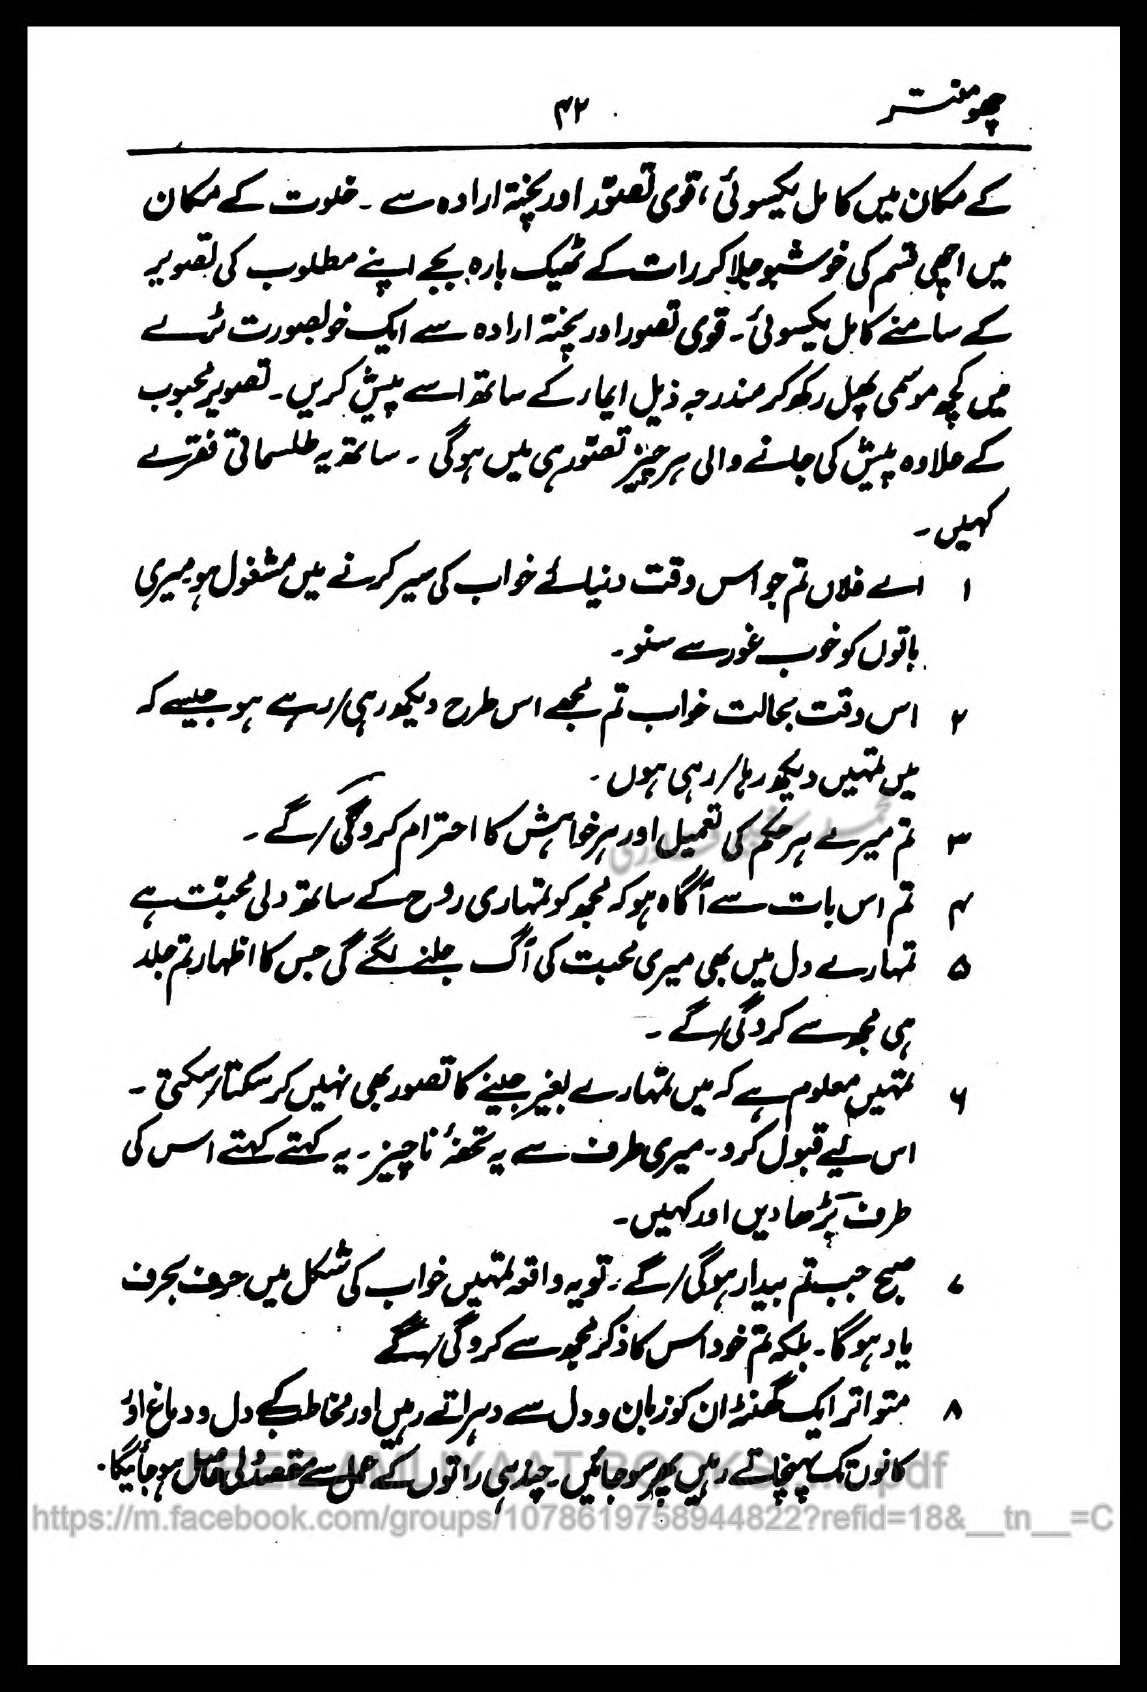 چھو منتر
۴۲
کے مکان میں کامل یکسوئی، قوی تصوّر اور پختہ ارادہ سے ۔ خلوت کے مکان
میں اچھی قسم کی خوشبو جلا کر رات کے ٹھیک بارہ بجے اپنے مطلوب کی تصویر
کے سامنے کامل یکسوئی ۔ قوی تصور اور پختہ ارادہ سے ایک خوبصورت ٹرے
میں کچھ موسمی پھل رکھ کر مندرجہ ذیل ایماء کے ساتھ اسے پیش کریں ۔ تصویر محبوب
کے علاوہ پیش کی جانے والی ہر چیز تصوّر ہی میں ہوگی ۔ ساتھ یہ طلسماتی فقرے
کہیں ۔
۱ اے فلاں تم جو اس وقت دنیائے خواب کی سیر کرنے میں مشغول ہو میری
باتوں کو خوب غور سے سنو ۔
۲ اس وقت بحالت خواب تم مجھے اس طرح دیکھ رہی/رہے ہو جیسے کہ
میں تمہیں دیکھ رہا/رہی ہوں ۔
۳ تم میرے ہر حکم کی تعمیل اور ہر خواہش کا احترام کروگی/گے ۔
۴ تم اس بات سے آگاہ ہو کہ مجھ کو تمہاری روح کے ساتھ دلی محبّت ہے
۵ تمہارے دل میں بھی میری محبت کی آگ جلنے لگے گی جس کا اظہار تم جلد
ہی مجھ سے کروگی/گے ۔
۶ تمہیں معلوم ہے کہ میں تمہارے بغیر جینے کا تصور بھی نہیں کر سکتا/سکتی ۔
اس لیے قبول کرو ۔ میری طرف سے یہ تحفۂ ناچیز ۔ یہ کہتے کہتے اس کی
طرف بڑھا دیں اور کہیں ۔
۷ صبح جب تم بیدار ہوگی/گے ۔ تو یہ واقعہ تمہیں خواب کی شکل میں حرف بحرف
یاد ہوگا ۔ بلکہ تم خود اس کا ذکر مجھ سے کروگی/گے
۸ متواتر ایک گھنٹہ ان کو زبان و دل سے دہراتے رہیں اور مخاطب کے دل و دماغ اور
کانوں تک پہنچاتے رہیں پھر سو جائیں ۔ چند ہی راتوں کے عمل سے مقصد دلی حاصل ہو جائیگا ۔
FREE AMLIYAAT BOOKS pdf
https://m.facebook.com/groups/1078619758944822?refid=18&__tn__=C